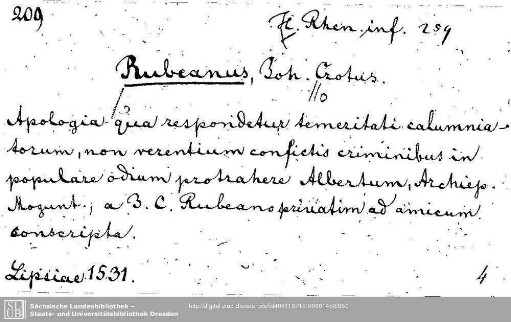 209
H. Rhen. inf. 259
Rubeanus, Joh. Crotus.
Apologia qua respondetur temeritati calumnia-
torum, non verentium confictis criminibus in
populare odium protrahere Albertum, Archiep.
Mogunt., a J. C. Rubeano privatim ad amicum
conscripta.
Lipsiae 1531. 4
SLUB
Sächsische Landesbibliothek –
Staats- und Universitätsbibliothek Dresden